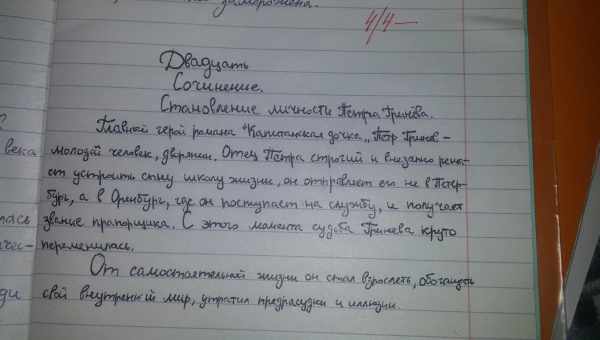 заморожена.
4/4—
Двадцать
Сочинение.
Становление личности Петра Гринёва.
Главной герой романа "Капитанская дочка„ Пётр Гринёв -
века молодой человек, дворянин. Отец Петра строгий и внезапно реша-
ет устроить сыну школу жизни, он отправляет его не в Петер-
бург, а в Оренбург, где он поступает на службу, и получает
лась звание прапорщика. С этого момента судьба Гринёва круто
чес- переменилась.
От самостоятельной жизни он стал взрослеть, обогащать
ди свой внутренний мир, утратил предрасудки и иллюзии.